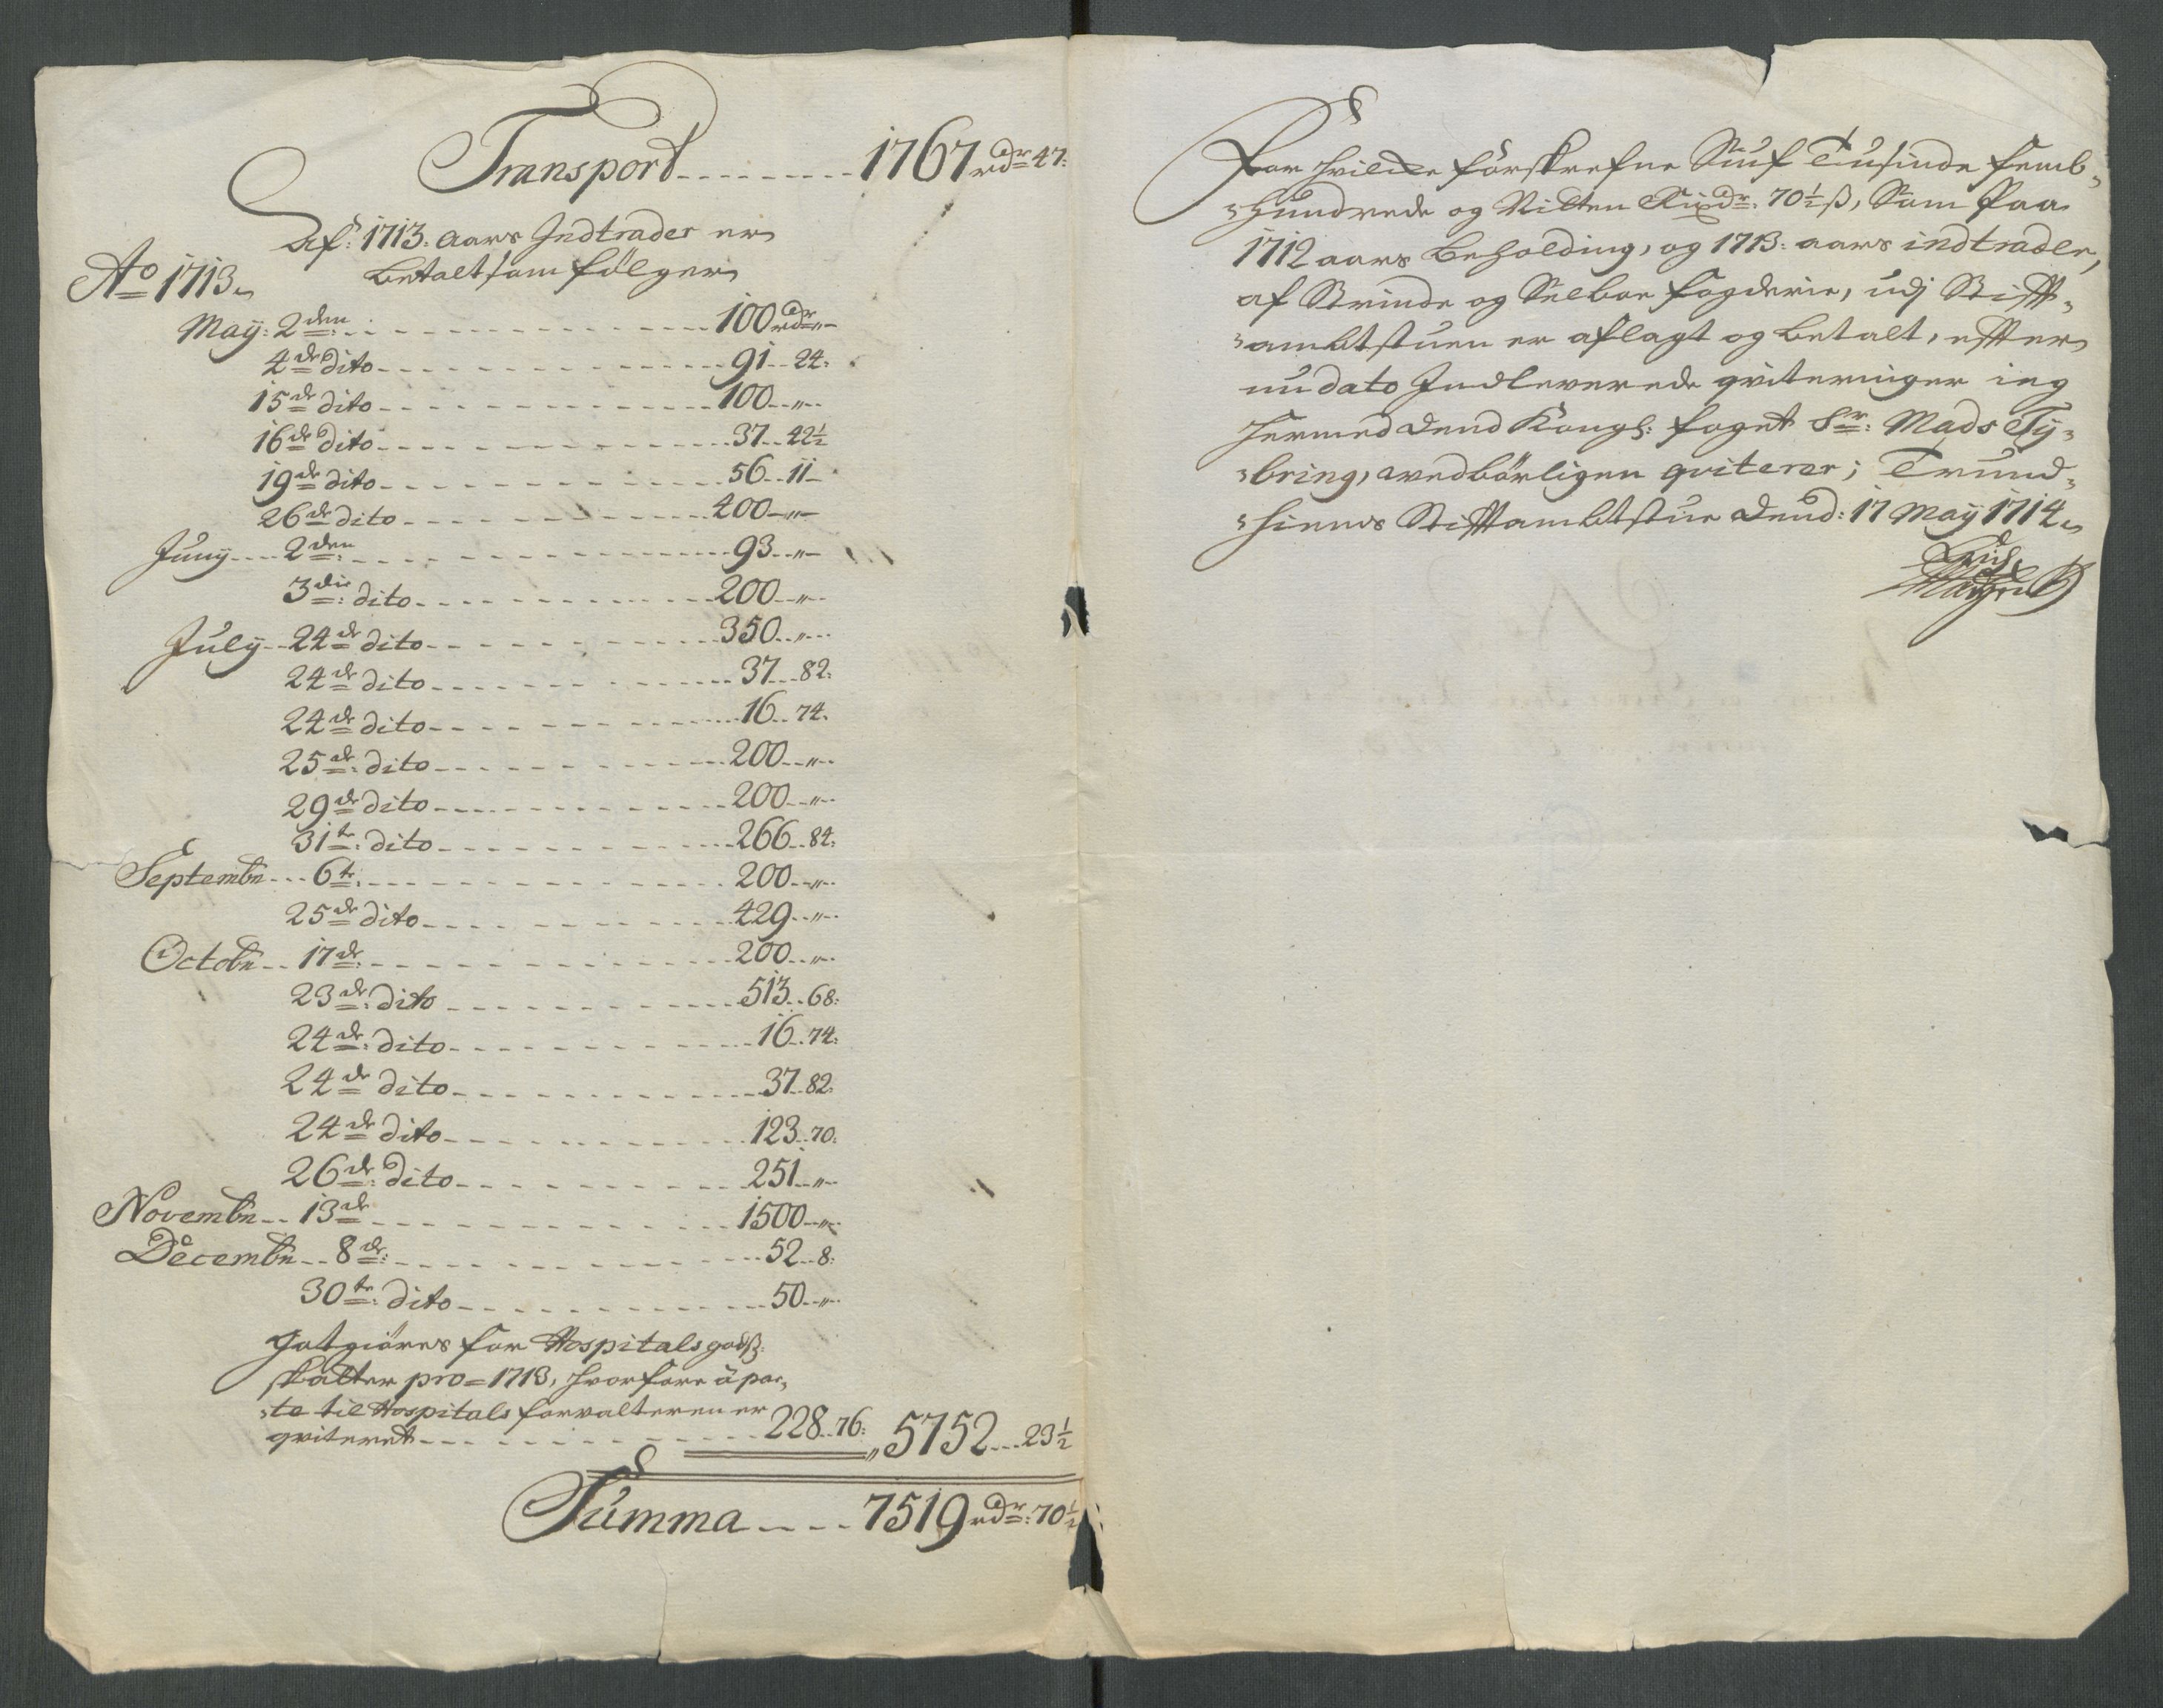 Transport - - - - - - - - - 1767 rdr 47:
Af: 1713: aars Indtrader er
Ao 1713
betalt som fölger
Maÿ: 2den: - - - - - - - - 100 rdr „ -
4de dito - - - - - - - - 91 - 24:
15de dito - - - - - - - - 100 - „ -
16de dito - - - - - - - - 37 - 42½
19de dito - - - - - - - - 56 - 11 -
26de dito - - - - - - - - 400 - „ -
Junÿ - - 2den: - - - - - - - - 93 - „ -
3die: dito - - - - - - - - 200 - „ -
Julÿ - - 24de dito - - - - - - - - 350 - „ -
24de dito - - - - - - - - 37 - 82:
24de dito - - - - - - - - 16 - 74.
25de: dito - - - - - - - - 200 - „ -
29de dito - - - - - - - - 200 - „ -
31te: dito - - - - - - - - 266 - 84:
Septembr - - 6te: - - - - - - - - 200 - „ -
25de dito - - - - - - - - 429 - „ -
Octobr - - 17de: - - - - - - - - 200 - „ -
23de: dito - - - - - - - - 513 - 68:
24de: dito - - - - - - - - 16 - 74:
24de dito - - - - - - - - 37 - 82:
24de dito - - - - - - - - 123 - 70:
26de: dito - - - - - - - - 251 - „ -
Novembr - - 13de - - - - - - - - 1500 - „ -
Decembr - - 8de: - - - - - - - - 52 - 8:
30te: dito - - - - - - - - 50 - „ -
Gotgiöres for Hospitals godß:
skatter pro = 1713, hvorfore àpar,
,te til Hospitals forvalteren er
qviteret - - - - - - - - 228 - 76: „ 5752 - - 23½
Summa - - - - 7519 rdr: 70½
For hvilcke forskrefne Siuf Tusinde femb,
,hundrede og Nitten Rixdr: 70½ ß, Som Paa
1712 aars beholding, og 1713: aars indtrader,
af Strinde og Selboe fogderie, udj Stifft,
,ambtstuen er aflagt og betalt, effter
nu dato Indleverede qviteringer ieg
hermed dend Kongl: foget Sr: Mads Tÿ,
,bring, vedbörligen qviterer; Trund,
,hiems Stifftambtstue dend: 17 Maÿ 1714